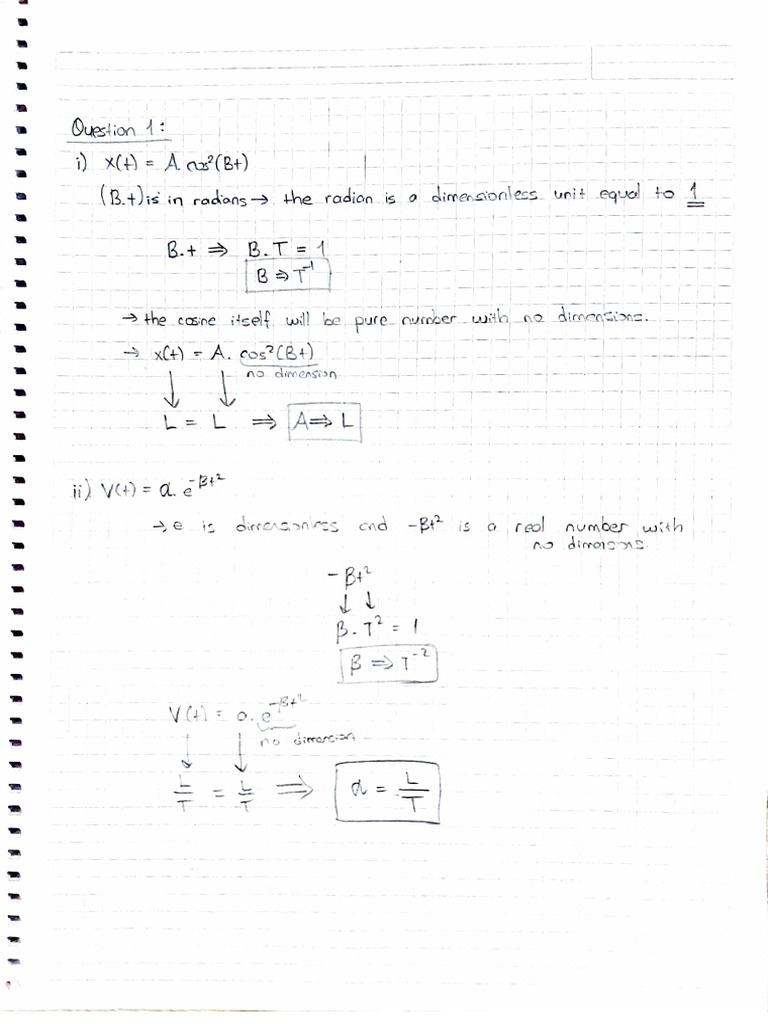 Question 1:
i) x(t) = A. cos²(Bt)
(B.t) is in radians → the radian is a dimensionless unit equal to 1
B.t ⇒ B.T = 1
B ⇒ T⁻¹
→ the cosine itself will be pure number with no dimensions.
→ x(t) = A. cos²(Bt)
no dimension
L = L ⇒ A ⇒ L
ii) V(t) = α. e^-βt²
→ e is dimensionless and -βt² is a real number with
no dimensions.
-βt²
β. T² = 1
β ⇒ T⁻²
V(t) = α. e^-βt²
no dimension
L/T = L/T ⇒ α = L/T